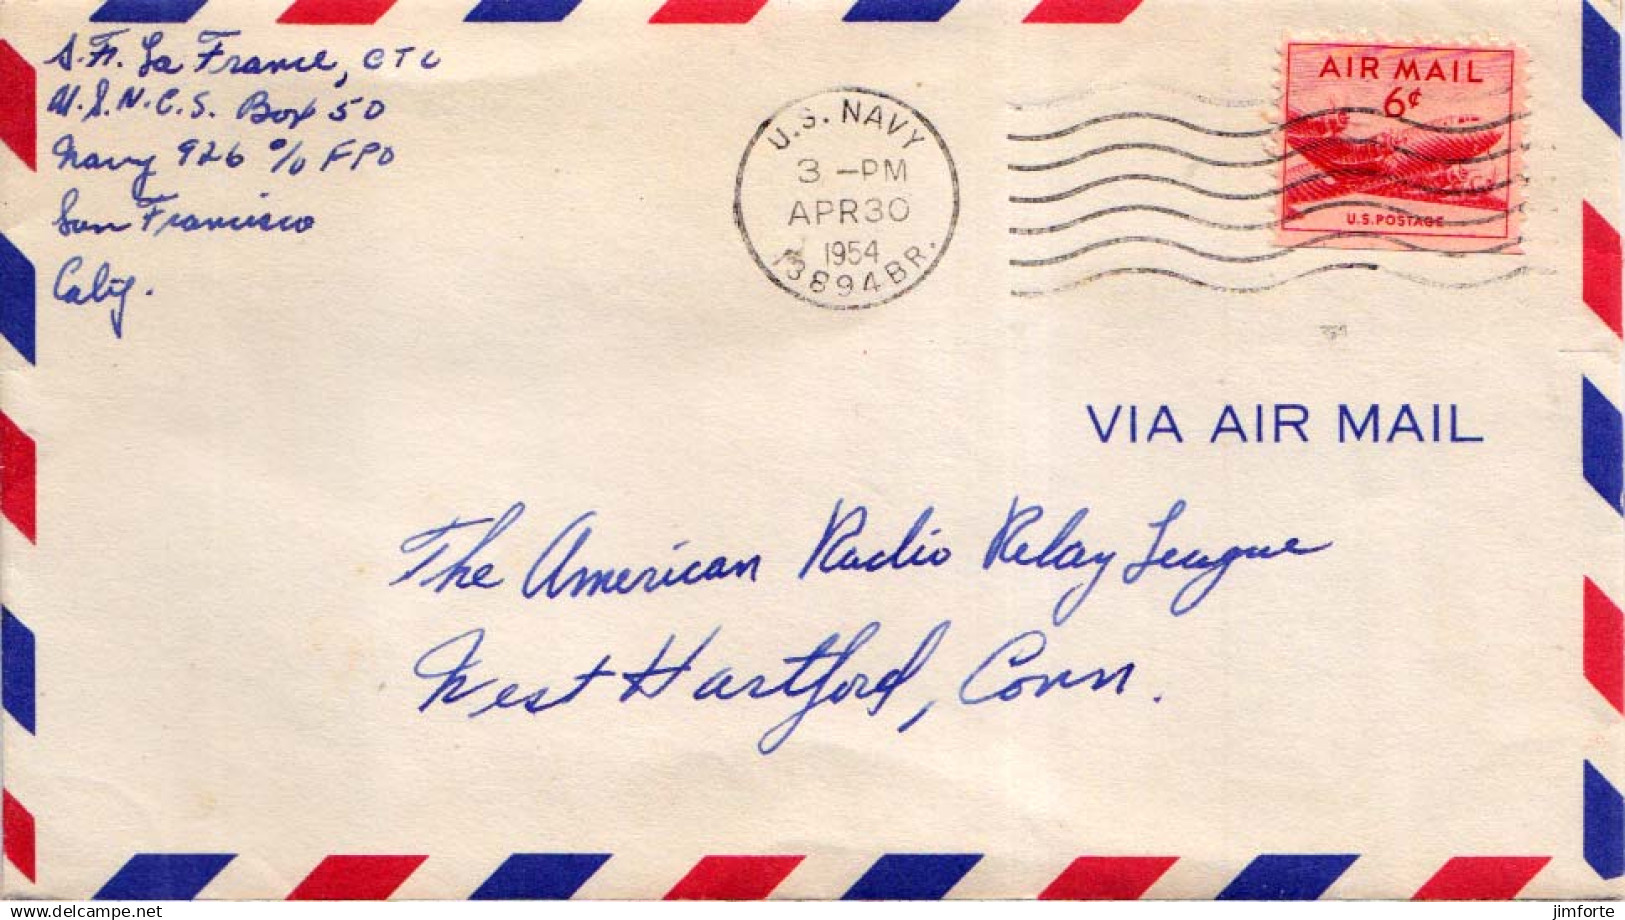 S.F. La France, CTC
U.S.N.C.S. Box 50
Navy 926 % FPO
San Francisco
Calif.
U.S. NAVY
3 -PM
APR30
1954
13894BR.
AIR MAIL
6¢
U.S. POSTAGE
VIA AIR MAIL
The American Radio Relay League
West Hartford, Conn.
delcampe.net
jimforte